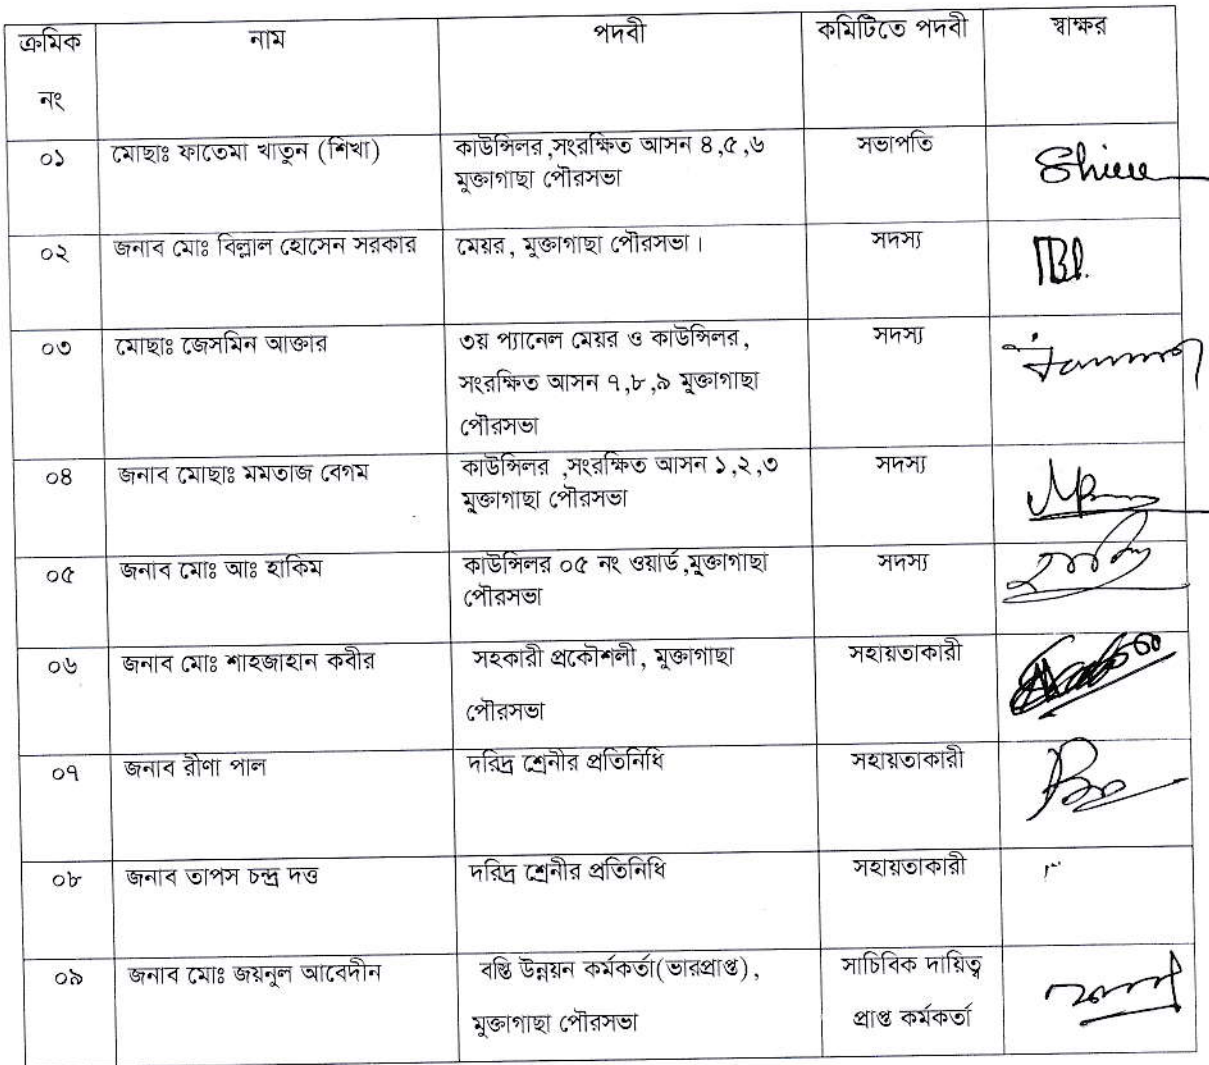 ক্রমিক নাম পদবী কমিটিতে পদবী স্বাক্ষর
নং
০১ মোছাঃ ফাতেমা খাতুন (শিখা) কাউন্সিলর,সংরক্ষিত আসন ৪,৫,৬ সভাপতি
মুক্তাগাছা পৌরসভা
০২ জনাব মোঃ বিল্লাল হোসেন সরকার মেয়র, মুক্তাগাছা পৌরসভা। সদস্য
০৩ মোছাঃ জেসমিন আক্তার ৩য় প্যানেল মেয়র ও কাউন্সিলর, সদস্য
সংরক্ষিত আসন ৭,৮,৯ মুক্তাগাছা
পৌরসভা
০৪ জনাব মোছাঃ মমতাজ বেগম কাউন্সিলর ,সংরক্ষিত আসন ১,২,৩ সদস্য
মুক্তাগাছা পৌরসভা
০৫ জনাব মোঃ আঃ হাকিম কাউন্সিলর ০৫ নং ওয়ার্ড,মুক্তাগাছা সদস্য
পৌরসভা
০৬ জনাব মোঃ শাহজাহান কবীর সহকারী প্রকৌশলী, মুক্তাগাছা সহায়তাকারী
পৌরসভা
০৭ জনাব রীণা পাল দরিদ্র শ্রেনীর প্রতিনিধি সহায়তাকারী
০৮ জনাব তাপস চন্দ্র দত্ত দরিদ্র শ্রেনীর প্রতিনিধি সহায়তাকারী
০৯ জনাব মোঃ জয়নুল আবেদীন বস্তি উন্নয়ন কর্মকর্তা(ভারপ্রাপ্ত), সাচিবিক দায়িত্ব
মুক্তাগাছা পৌরসভা প্রাপ্ত কর্মকর্তা